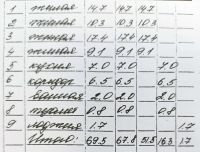 1 жилая 14.7 14.7 14.7
2 жилая 10.3 10.3 10.3
3 жилая 17.4 17.4 17.4
4 жилая 9.1 9.1 9.1
5 кухня 7.0 7.0 7.0
6 коридор 6.5 6.5 6.5
7 ванная 2.0 2.0 2.0
8 туалет 0.8 0.8 0.8
9 лоджия 1.7 1.7
Итого: 69.5 67.8 51.5 16.3 1.7